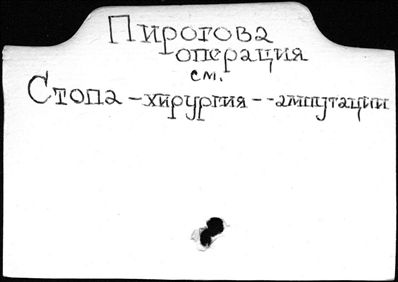 Пирогова
операция
см.
Стопа - хирургия - - ампутации